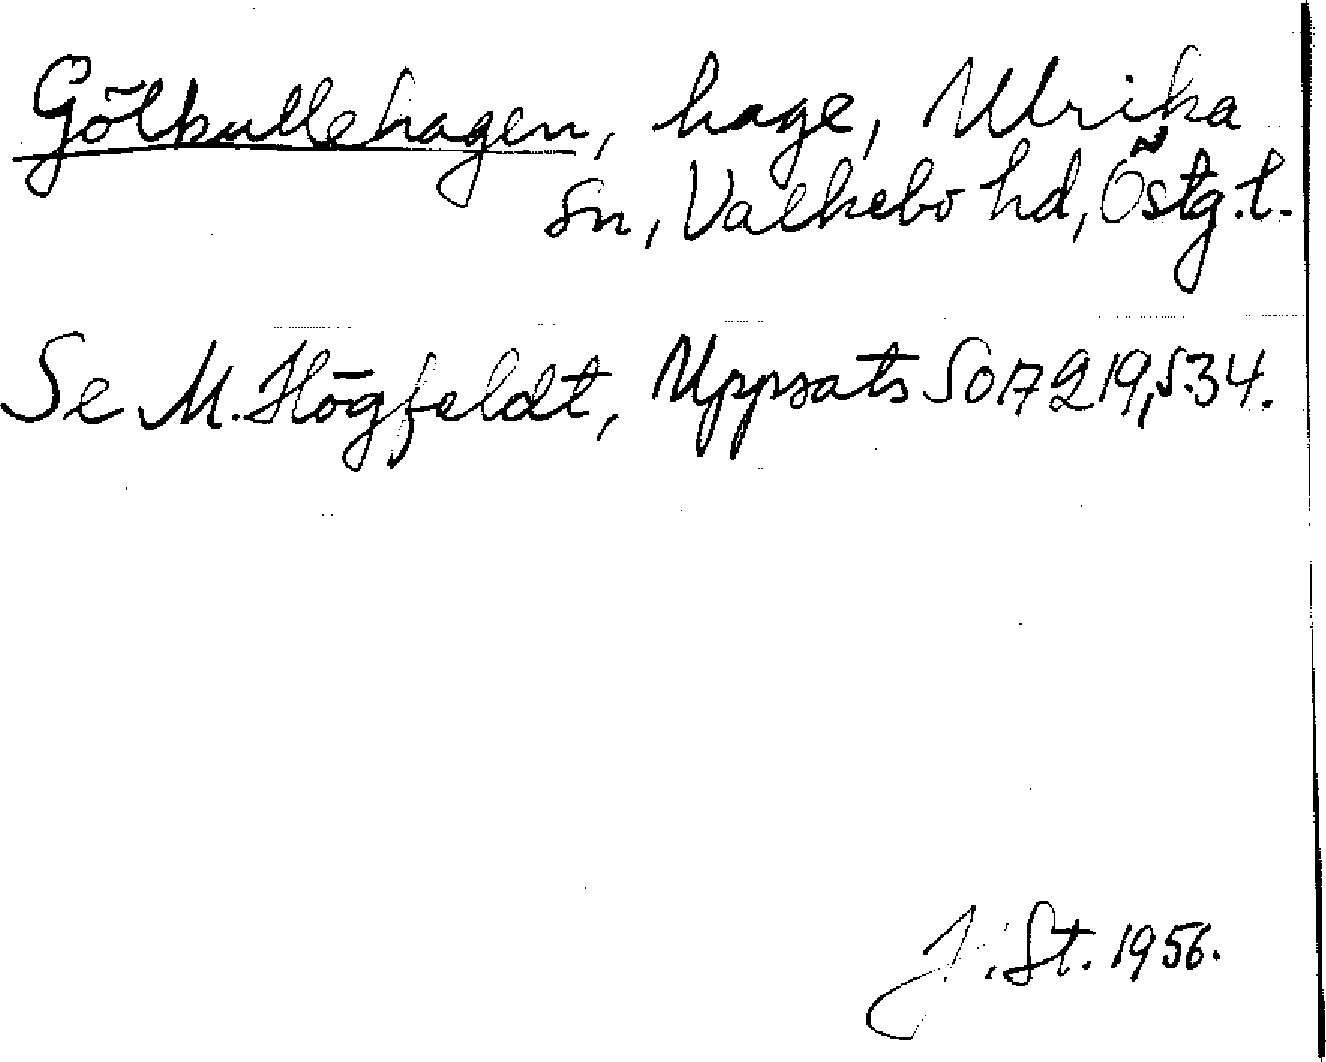 Gölkullehagen, hage, Ulrika
sn, Valkebo hd, Östg.l.
Se M. Högfeldt, Uppsats SOA 219, s. 34.
J. St. 1956.